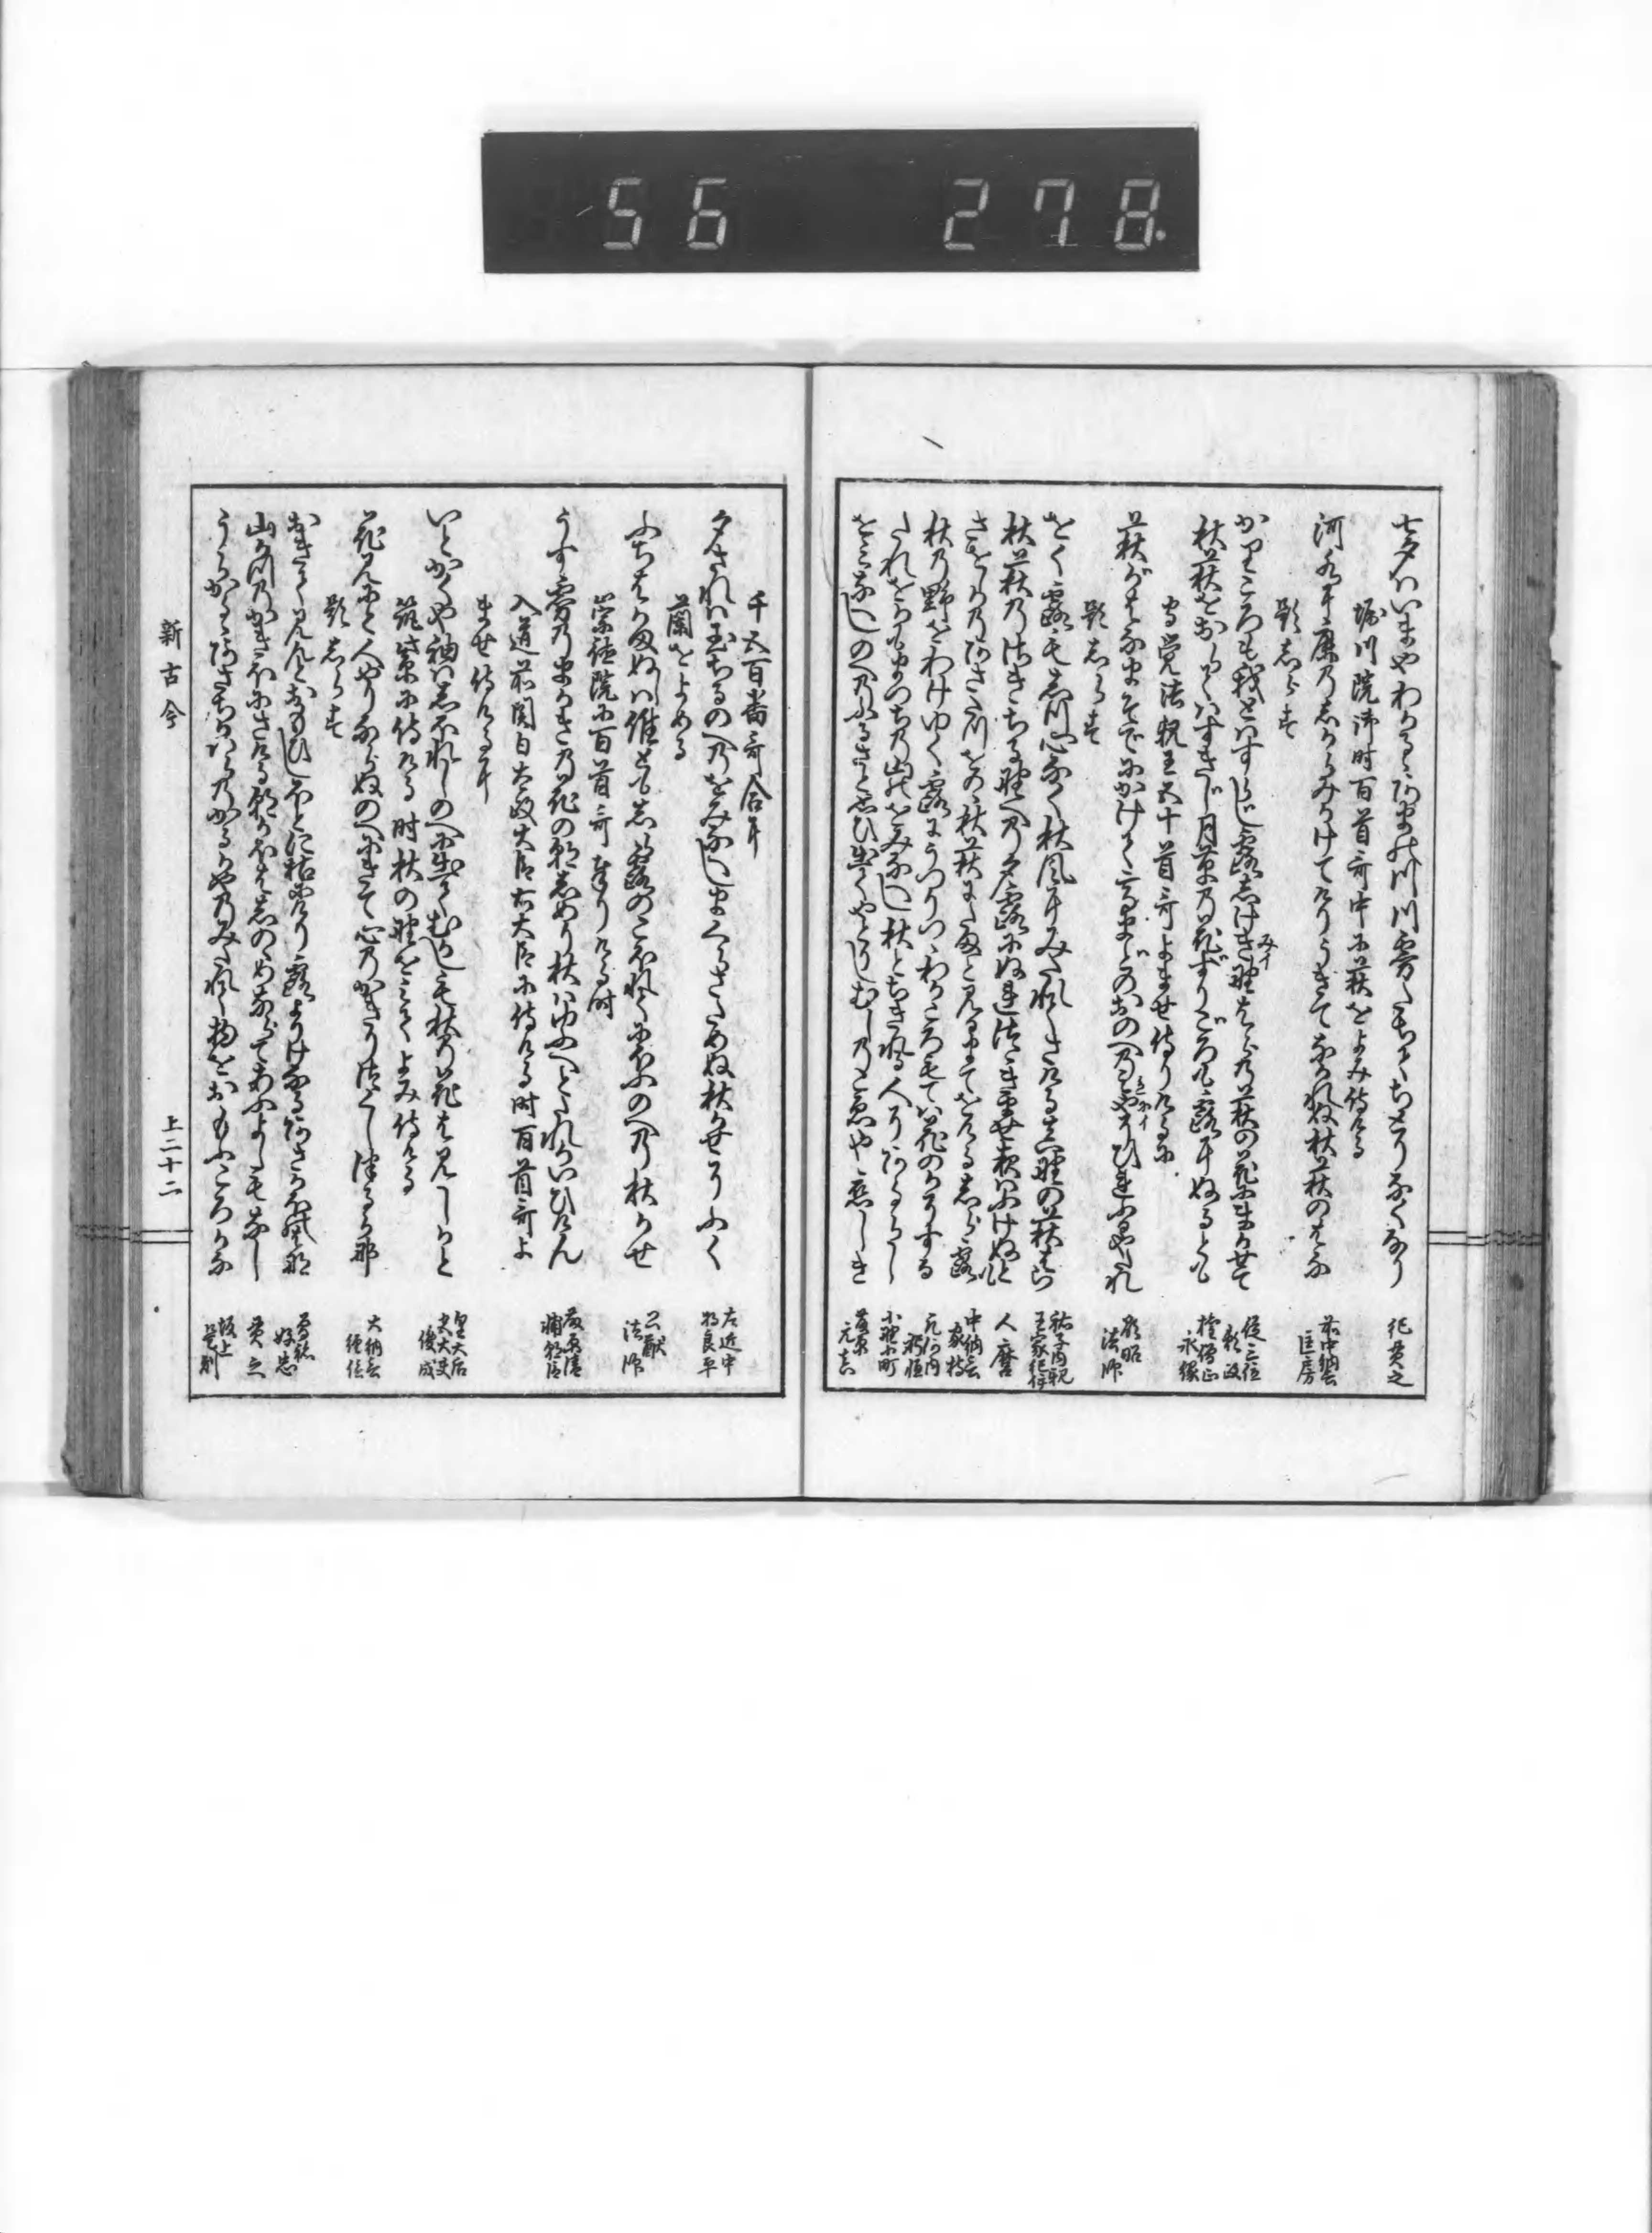 56 278.
七夕はいまやわかるゝあまの川川霧たちてちとりなくなり 紀貫之
堀川院御時百首哥中に萩をよみ侍ける
河水に鹿のしからみかけてけりうきてなかれぬ秋萩のはな 前中納言匡房
題しらす
かりころも我とはすらじ露しけき野はらの萩の花にまかせて 従三位頼政
みイ
秋萩をおらてはすきじ月草の花ずりごろも露にぬるとも 権僧正永縁
守覚法親王五十首哥よませ侍りけるに
萩がはなまそでにかけて高まどのおのへの宮にひれふるやたれ 顕昭法師
題しらす
をく露もしつ心なく秋風にみたれてさけるま野の萩はら 祐子内親王家紀伊
秋萩のさきちる野への夕露にぬれつゝきませ夜はふけぬと 人麿
さをしかのあさたつをのゝ秋萩に玉と見るまてをけるしら露 中納言家持
秋の野をわけゆく露にうつりつゝわかころもては花のかそする 凡河内躬恒
たれをかもまつちの山のをみなへし秋とちきれる人そあるらし 小野小町
をみなへしのへのふるさと思ひ出てやとりしむしのこゑや恋しき 藤原元真
千五百番哥合に
夕されは玉ちるのへのをみなへしまくらさためぬ秋かせそふく 左近中将良平
蘭をよめる
ふちはかまぬしは誰ともしら露のこほれてにほふのへの秋かせ 公猷法師
崇徳院に百首哥奉りける時
うす霧のまかきの花の朝しめり秋はゆふへとたれかいひけん 藤原清輔朝臣
入道前関白太政大臣右大臣に侍ける時百首哥よ
ませ侍けるに
いとかくや袖はしほれしのへに出てむかしも秋の花は見しかと 皇太后宮大夫俊成
筑紫に侍ける時秋の野を見てよみ侍ける
花見にと人やりならぬのへにきて心のかきりつくしつるかな 大納言経信
題しらす
おきて見んとおもひしほとに枯にけり露よりけなるあさかほの花 曽祢好忠
山かつのかきほにさける朝かほはしのゝめならてあふよしもなし 貫之
うらかるゝあさちかはらのかるかやのみたれて物をおもふころかな 坂上是則
新古今 上二十二